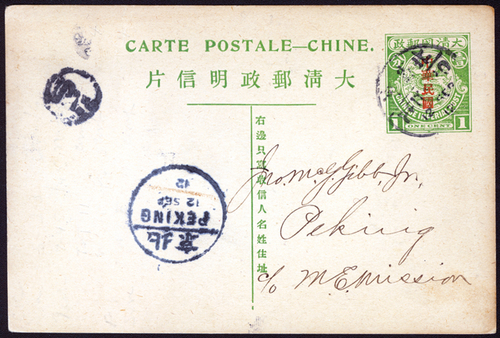 CARTE POSTALE—CHINE.
片信明政郵清大
政郵國清大
中華民國
CHINESE IMPERIAL POST
1 ONE CENT 1
右邊只寫收信人名姓住址
Jno. McG. Gibb Jr,
Peking
c/o M.E. Mission
北京
PEKING
12 SEP
12